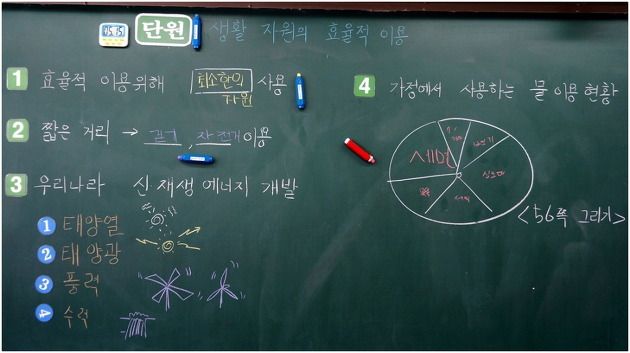 단원 생활 자원의 효율적 이용
1 효율적 이용 위해 최소한의 자원 사용
2 짧은 거리 → 걷기, 자전거 이용
3 우리나라 신·재생 에너지 개발
1 태양열
2 태양광
3 풍력
4 수력
4 가정에서 사용하는 물 이용 현황
<56쪽 그리기>